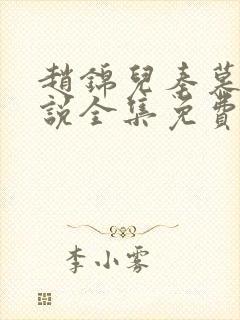 趙錦兒秦慕
說全集免費
李小雾